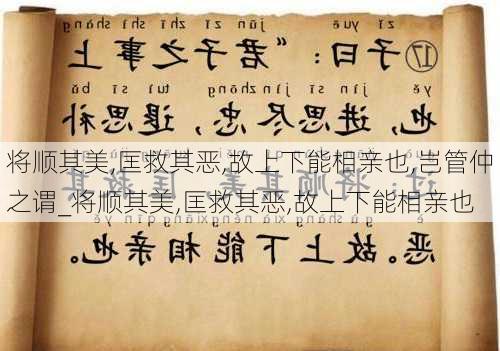 zǐ yuē jūn zǐ zhī shì shàng
⑰子曰：“君子之事上
yě jìn sī jìn zhōng tuì sī bǔ
也，进思尽忠，退思补
将顺其美,匡救其恶,故上下能相亲也,岂管仲
之谓_将顺其美,匡救其恶,故上下能相亲也
è gù shàng xià néng xiāng qīn yě
恶。故上下能相亲也。